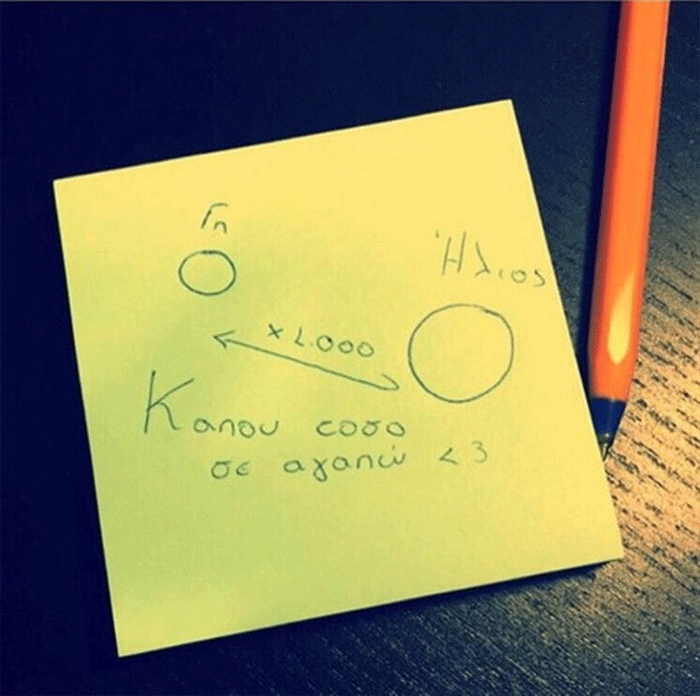 Γη
Ήλιος
x 1.000
Καπου τοσο
σε αγαπώ <3